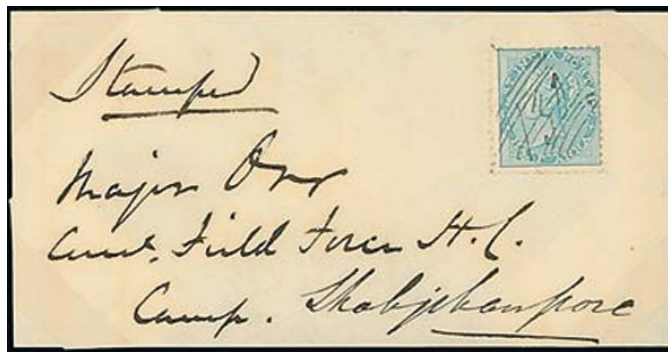 Stamped
Major Orr
Comt. Field Force H. C.
Camp. Shahjehanpore